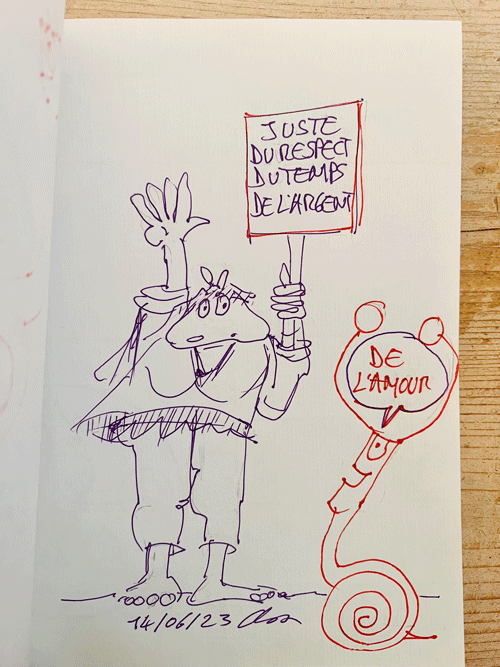 JUSTE
DU RESPECT
DU TEMPS
DE L'ARGENT
DE
L'AMOUR
14/06/23